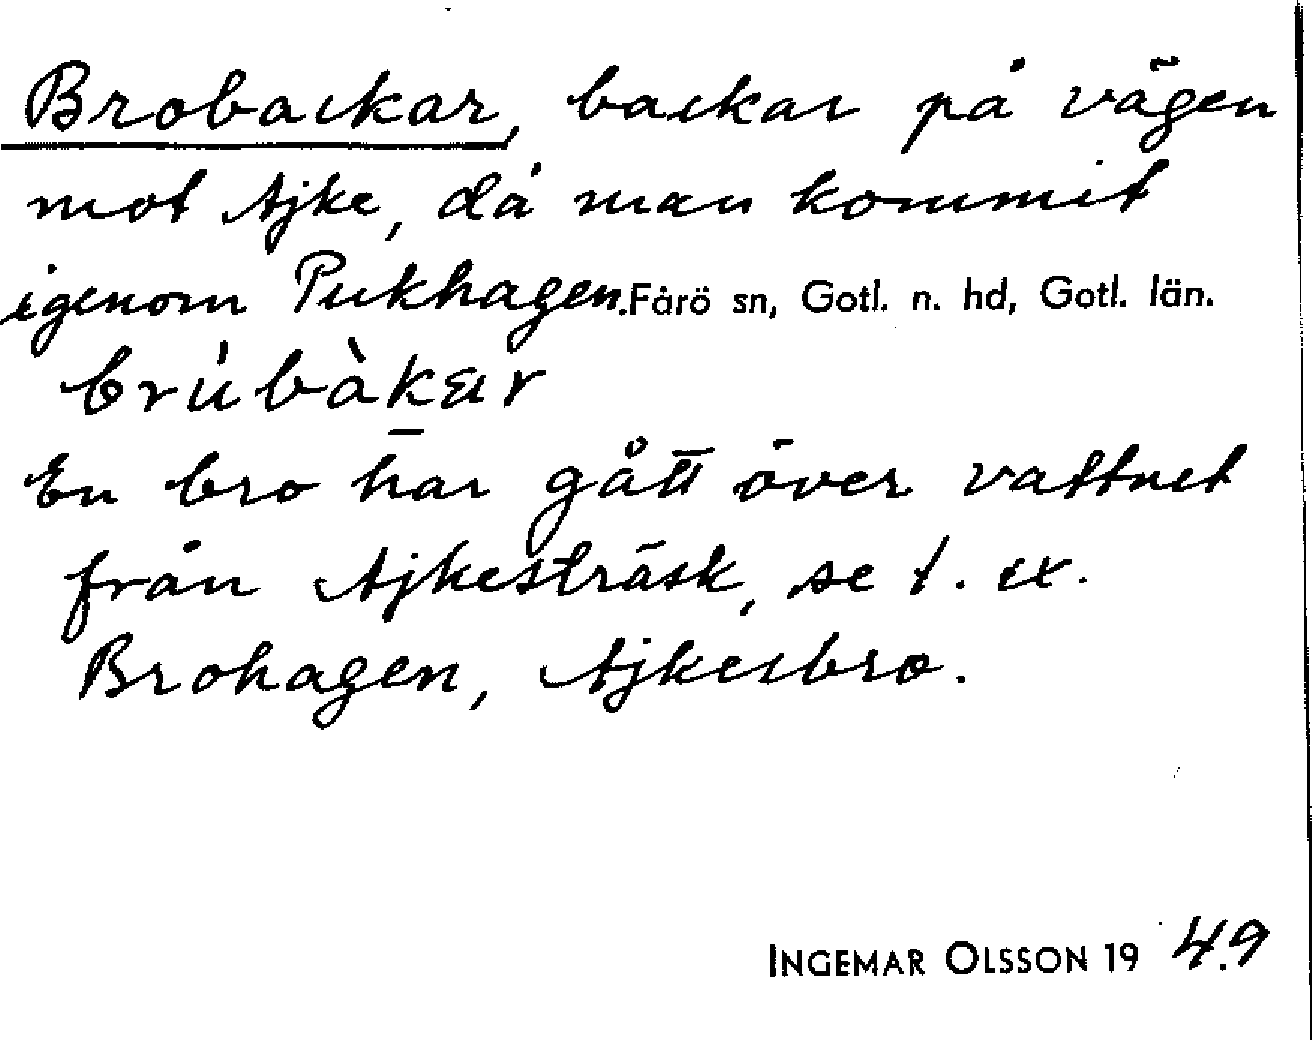 Brobackar, backar på vägen
mot Ajke, då man kommit
igenom Pukhagen. Fårö sn, Gotl. n. hd, Gotl. län.
brúbàkar
En bro har gått över vattnet
från Ajkesträsk, se t. ex.
Brohagen, Ajkesbro.
INGEMAR OLSSON 19 49